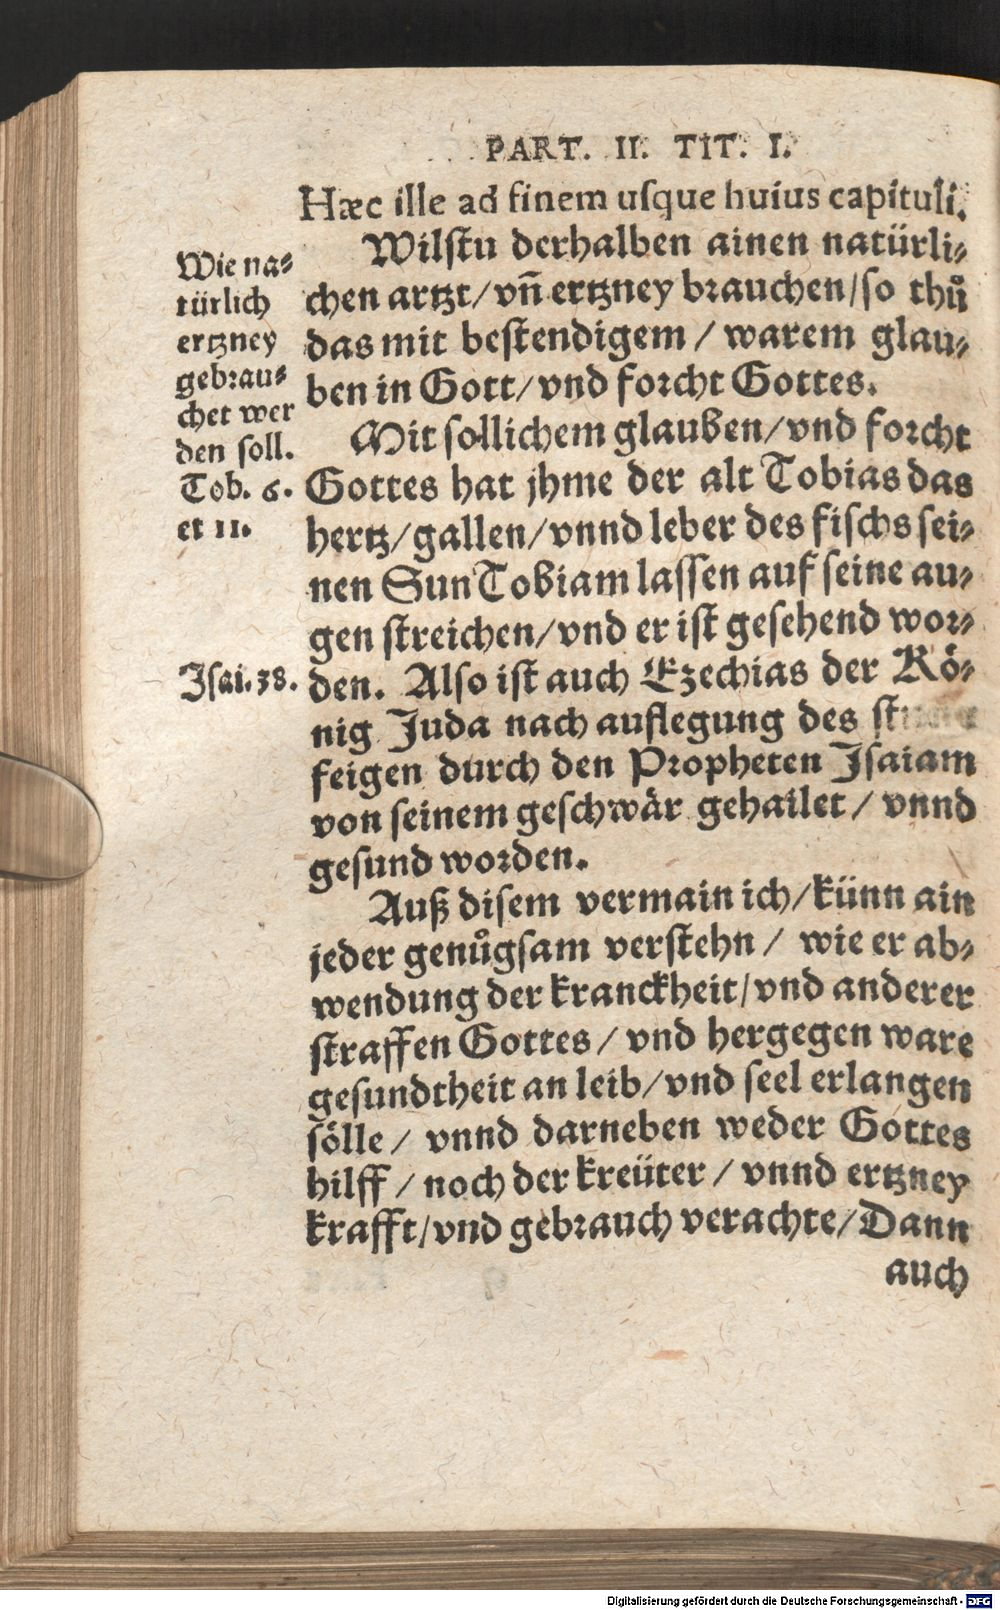 PART. II. TIT. I.
Hæc ille ad finem uſque huius capituli.
Wilſtu derhalben ainen natürli⸗
chen artzt/ vñ ertzney brauchen/ ſo thů
das mit beſtendigem / warem glau⸗
ben in Gott/ vnd forcht Gottes.
Mit ſollichem glauben/ vnd forcht
Gottes hat jhme der alt Tobias das
hertz/ gallen/ vnnd leber des fiſchs ſei⸗
nen Sun Tobiam laſſen auf ſeine au⸗
gen ſtreichen/ vnd er iſt geſehend wor⸗
den. Alſo iſt auch Ezechias der Kö⸗
nig Juda nach auflegung des
feigen durch den Propheten Jſaiam
von ſeinem geſchwär gehailet / vnnd
geſund worden.
Auß diſem vermain ich/ künn ain
jeder genůgſam verſtehn / wie er ab⸗
wendung der kranckheit/ vnd anderer
ſtraffen Gottes / vnd hergegen ware
geſundtheit an leib/ vnd ſeel erlangen
ſölle / vnnd darneben weder Gottes
hilff / noch der kreüter / vnnd ertzney
krafft/ vnd gebrauch verachte/ Dann
auch
Wie na⸗
türlich
ertzney
gebrau⸗
chet wer
den ſoll.
Tob. 6.
et 11.
Jſai. 38.
Digitalisierung gefördert durch die Deutsche Forschungsgemeinschaft - DFG